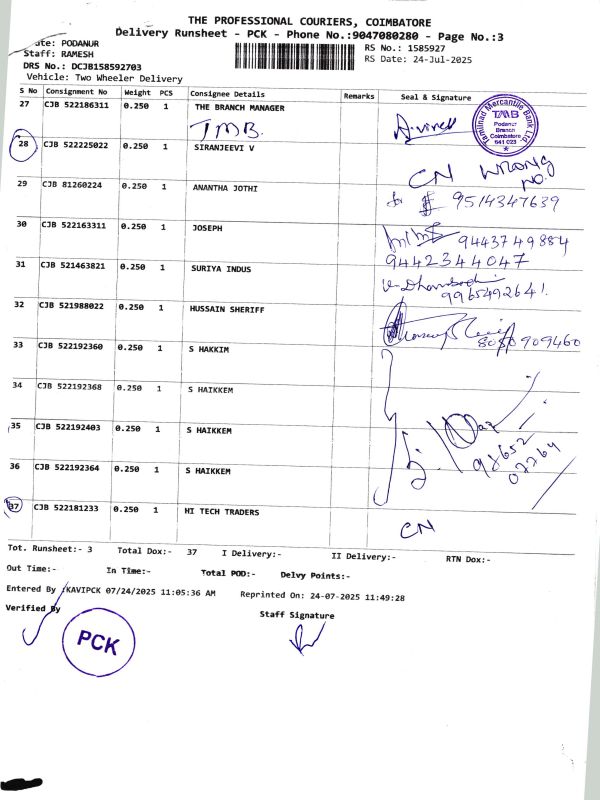 THE PROFESSIONAL COURIERS, COIMBATORE
Delivery Runsheet - PCK - Phone No.:9047080280 - Page No.:3
ate: PODANUR
RS No.: 1585927
Staff: RAMESH
RS Date: 24-Jul-2025
DRS No.: DCJB158592703
Vehicle: Two Wheeler Delivery
S No Consignment No Weight PCS Consignee Details Remarks Seal & Signature
27 CJB 522186311 0.250 1 THE BRANCH MANAGER
TMB.
Tamilnad Mercantile Bank Ltd.
TMB
Podanur
Branch
Coimbatore
641 023
28 CJB 522225022 0.250 1 SIRANJEEVI V
CN WRONG NO.
29 CJB 81260224 0.250 1 ANANTHA JOTHI
9514347639
30 CJB 522163311 0.250 1 JOSEPH
9443749884
9442344047
31 CJB 521463821 0.250 1 SURIYA INDUS
9965492641.
32 CJB 521988022 0.250 1 HUSSAIN SHERIFF
909460
33 CJB 522192360 0.250 1 S HAKKIM
34 CJB 522192368 0.250 1 S HAIKKEM
35 CJB 522192403 0.250 1 S HAIKKEM
98652
36 CJB 522192364 0.250 1 S HAIKKEM
37 CJB 522181233 0.250 1 HI TECH TRADERS
CN
Tot. Runsheet:- 3 Total Dox:- 37 I Delivery:- II Delivery:- RTN Dox:-
Out Time:- In Time:- Total POD:- Delvy Points:-
Entered By KAVIPCK 07/24/2025 11:05:36 AM Reprinted On: 24-07-2025 11:49:28
Verified By
Staff Signature
PCK